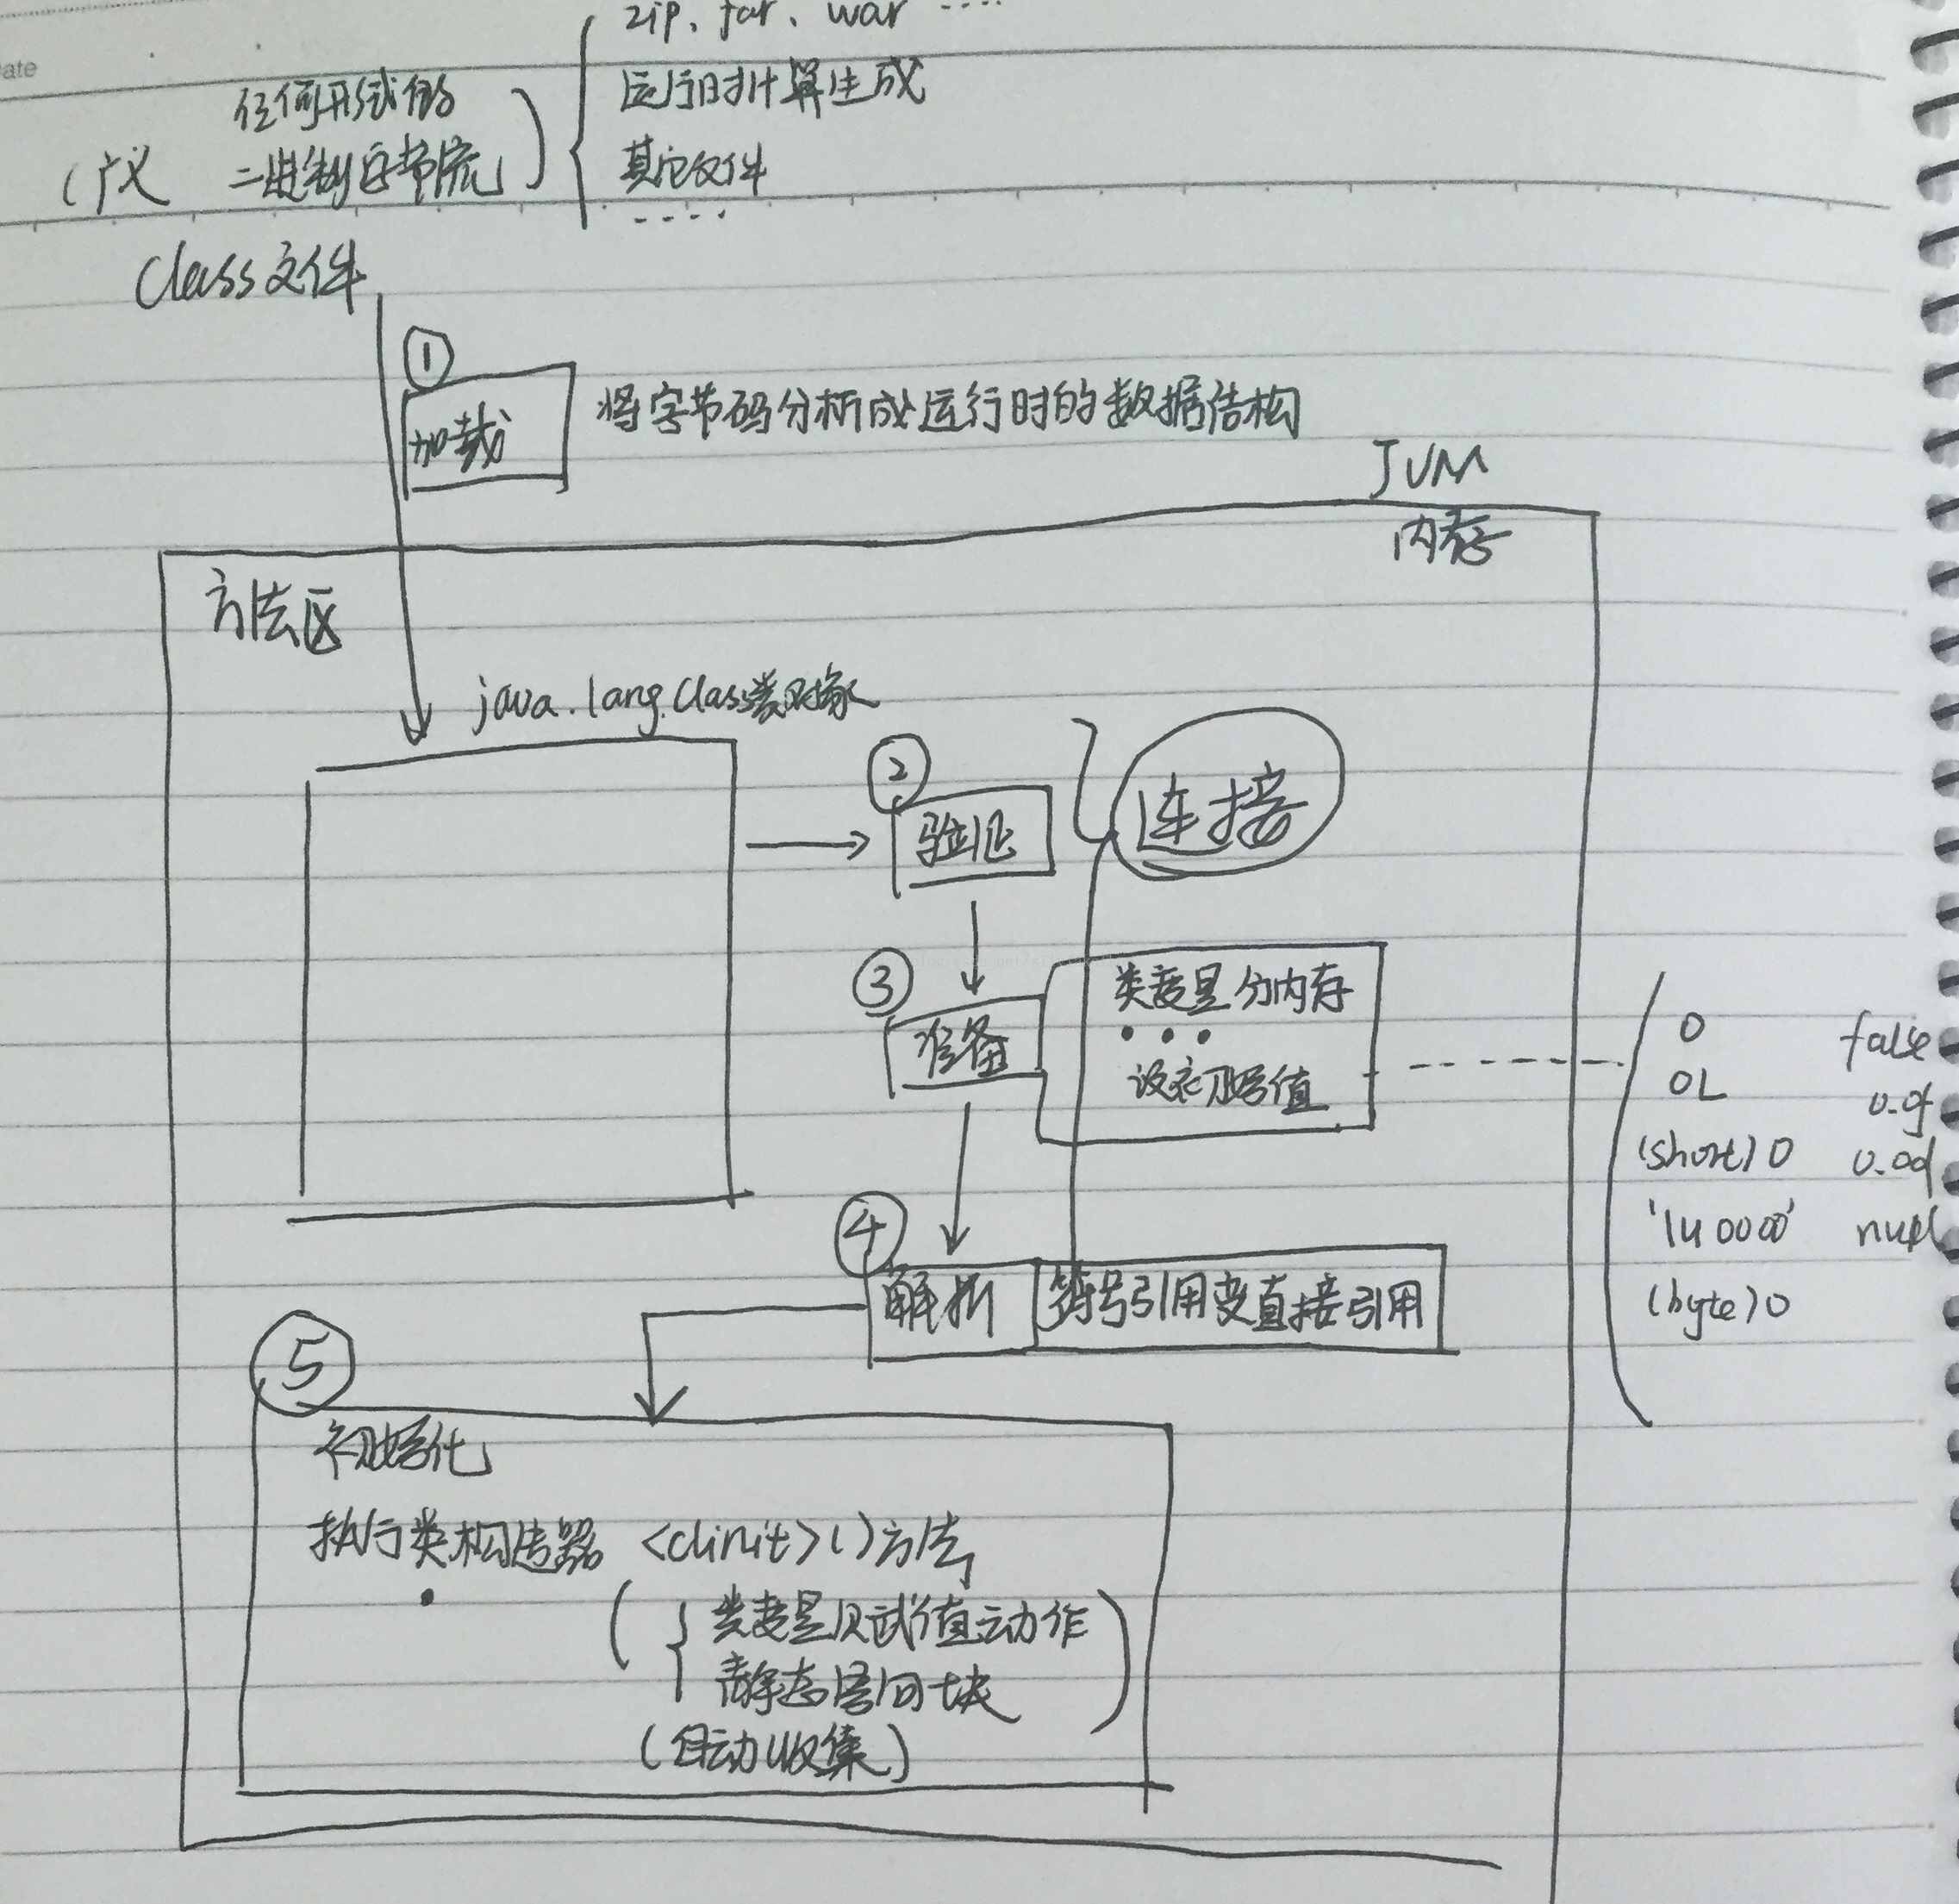 zip、jar、war ....
ate
任何形式的
运行时计算生成
(广义 二进制字节流)
其它文件
....
Class文件
①
加载
将字节码分析成运行时的数据结构
JVM
内存
方法区
java.lang.Class类对象
②
验证
连接
③
准备
类变量分内存
设初始值
0 false
0L 0.0f
(short)0 0.0d
'\u0000' null
(byte)0
④
解析 符号引用变直接引用
⑤
初始化
执行类构造器 <clinit>()方法
类变量赋值动作
静态语句块
(自动收集)